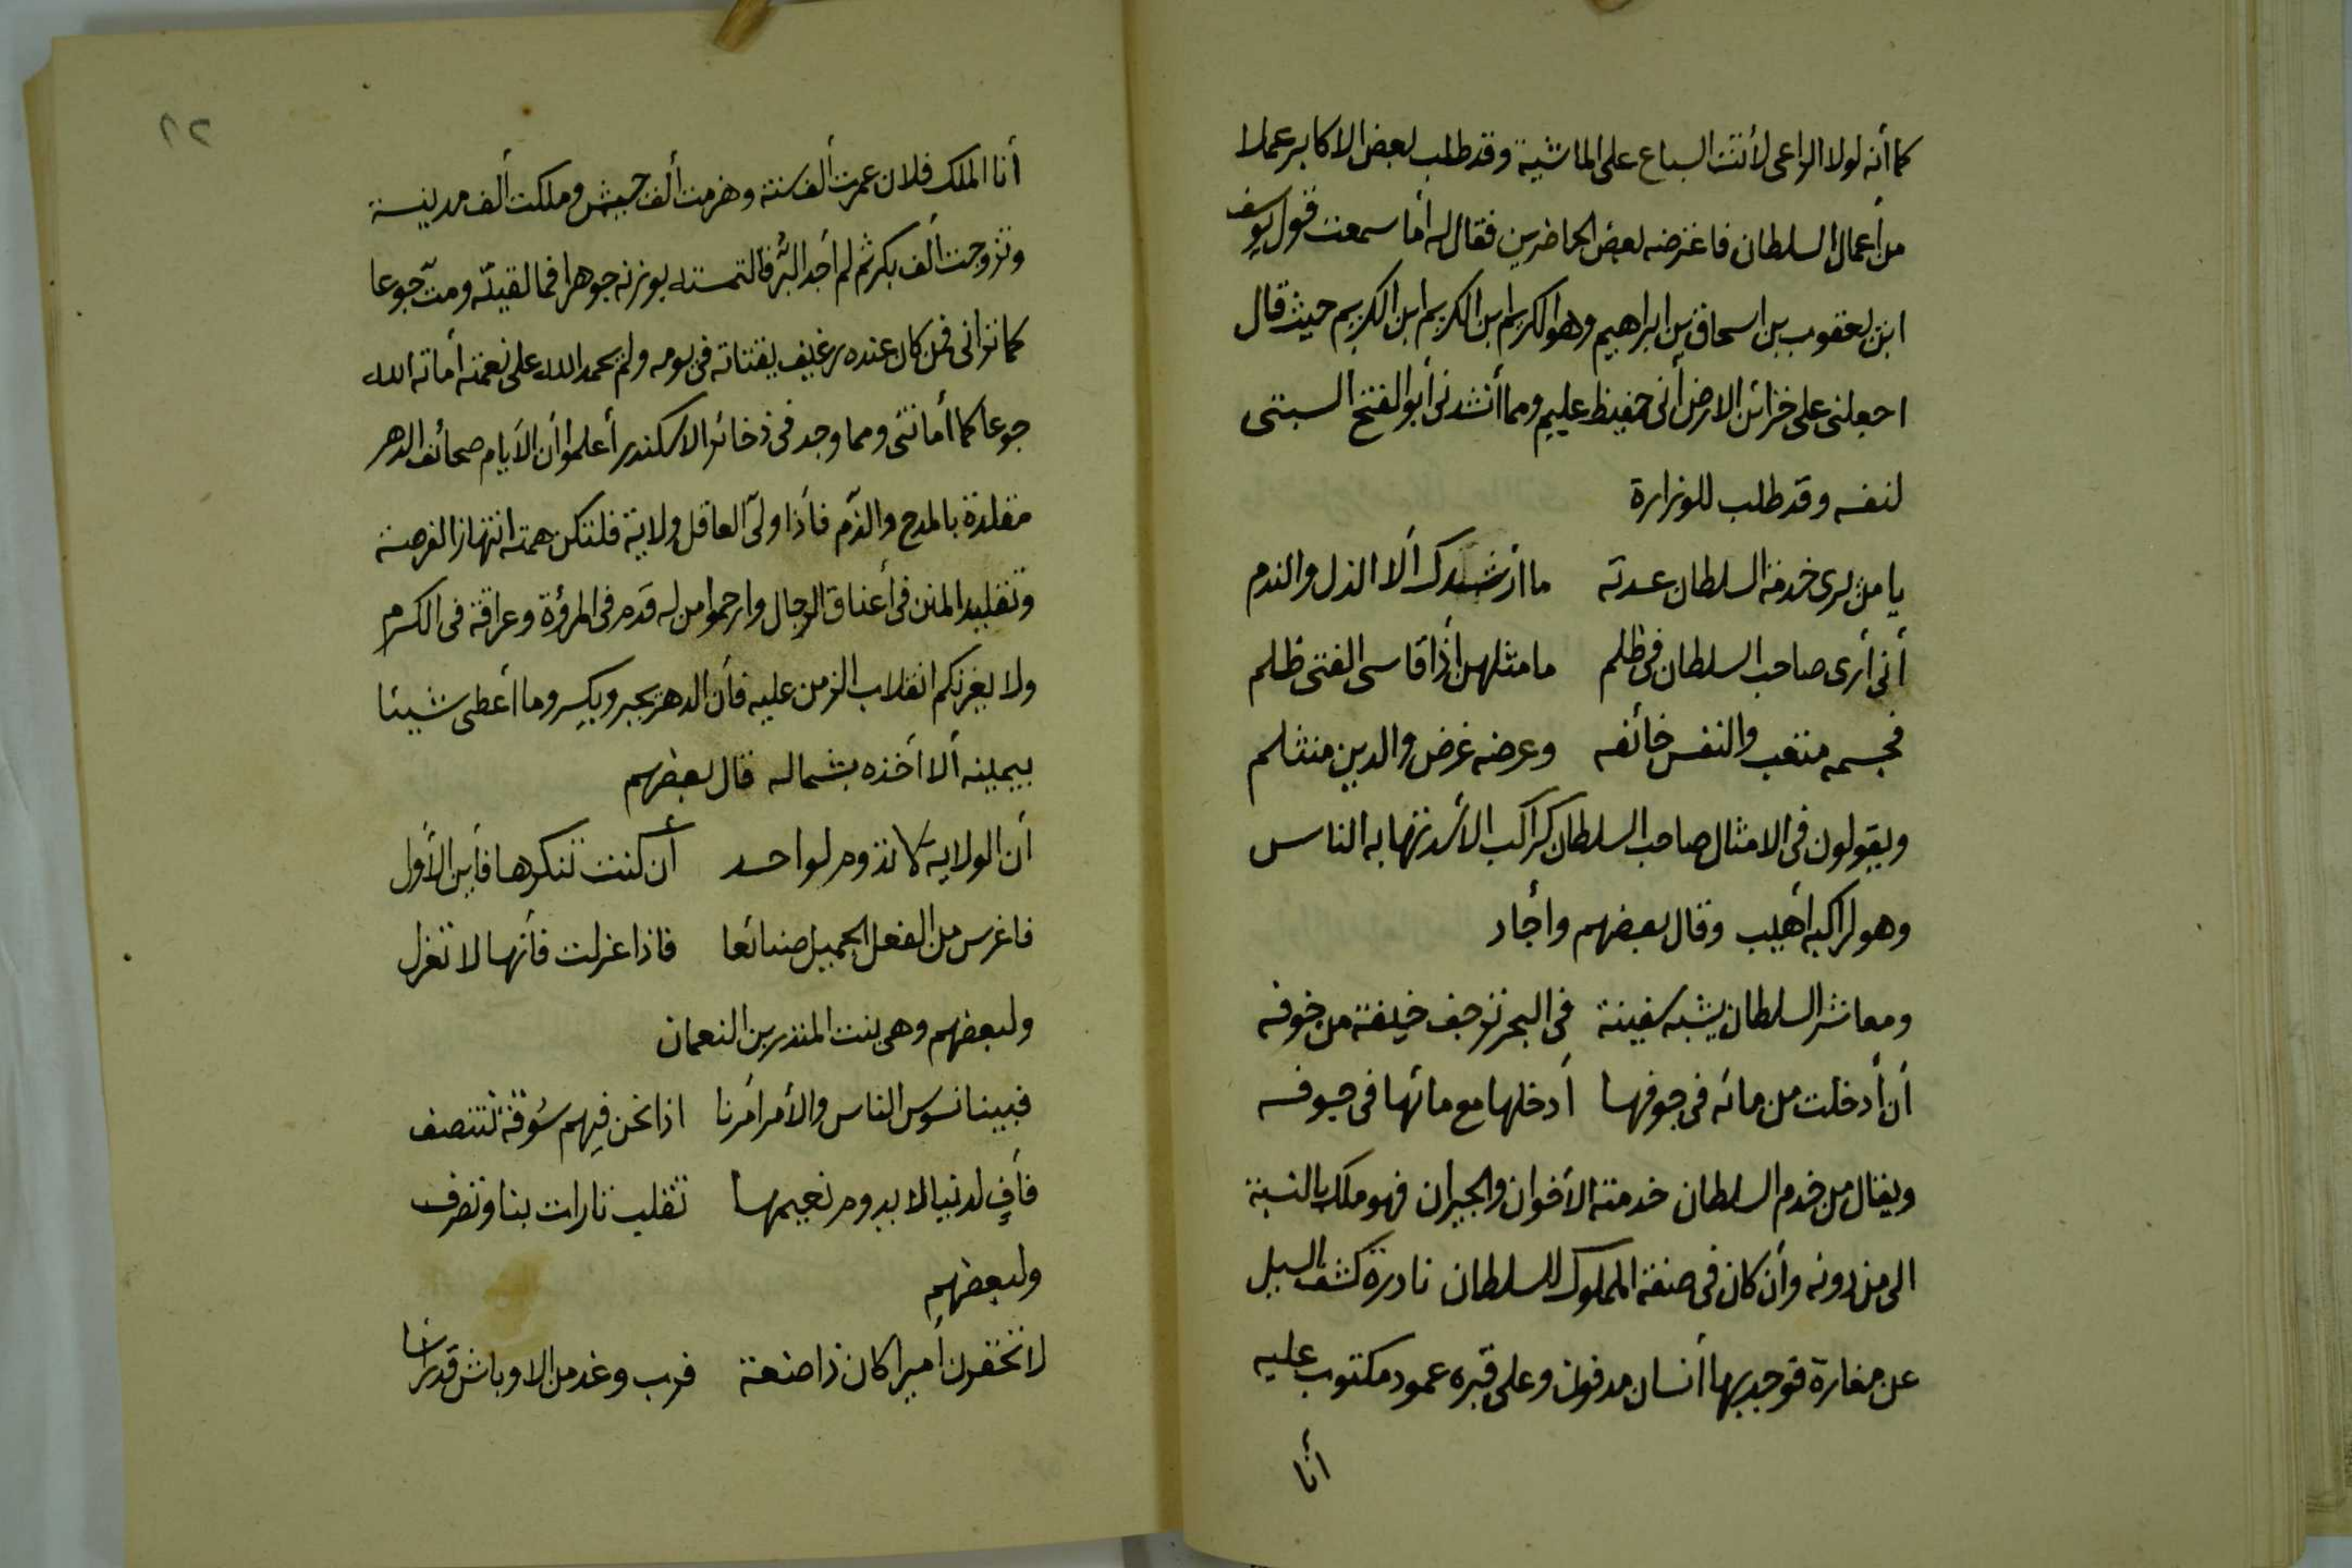 كما أنه لولا الراعى لأتت السباع على الماشية وقد طلب بعض الاكابر عملا
من أعمال السلطان فاعترضه بعض الحاضرين فقال له أما سمعت قول يوسف
ابن يعقوب بن اسحاق بن ابراهيم وهو الكريم ابن الكريم ابن الكريم حيث قال
اجعلنى على خزائن الارض أنى حفيظ عليم ومما أنشدنى أبو الفتح البستى
لنفسه وقد طلب للوزارة
يا من يرى خدمة السلطان عدته ما أرشدك ألا الذل والندم
أنى أرى صاحب السلطان فى ظلم ما مثلهن أذا قاسى الفتى ظلم
فجسمه متعب والنفس خائفه وعرضه غرض والدين منثلم
ويقولون فى الامثال صاحب السلطان كراكب الأسد تهابه الناس
وهو لراكبه أهيب وقال بعضهم وأجاد
ومعاشر السلطان يشبه سفينة فى البحر ترجف خيفة من خوفه
أن أدخلت من مائه فى جوفها أدخلها مع مائها فى جوفه
ويقال من خدم السلطان خدمته الأخوان والجيران فهو ملك بالنسبة
الى من دونه وأن كان فى صفة المملوك للسلطان نادرة كشف السيل
عن مغارة فوجد بها أنسان مدفون وعلى قبره عمود مكتوب عليه
أنا
٢٢
أنا الملك فلان عمرت ألف سنة وهزمت ألف جيش وملكت ألف مدينة
وتزوجت ألف بكر ثم لم أجد البُر فالتمسته بوزنه جوهرا فما لقيته ومت جوعا
كما ترانى فمن كان عنده رغيف يقتاته فى يومه ولم يحمد الله على نعمته أماته الله
جوعا كما أماتنى ومما وجد فى ذخائر الاسكندر أعلموا أن الأيام صحائف الدهر
مقلدة بالمدح والذم فأذا ولى العاقل ولاية فلتكن همته انتهاز الفرصة
وتقليد المنن فى أعناق الرجال وارحموا من له قدم فى المرؤة وعراقة فى الكرم
ولا يغرنكم انقلاب الزمن عليه فأن الدهر يجبر ويكسر وما أعطى شيئا
بيمينه ألا أخذه بشماله قال بعضهم
أن الولاية لا تدوم لواحد أن كنت تنكرها فأين الأول
فاغرس من الفعل الجميل صنائعا فاذا عزلت فأنها لا تعزل
ولبعضهم وهى بنت المنذر بن النعمان
فبينا نسوس الناس والأمر أمرنا اذا نحن فيهم سُوقة نتنصف
فأفٍ لدنيا لا يدوم نعيمها تقلب تارات بنا وتصرف
ولبعضهم
لا تحقرن أميرا كان ذا ضعة فرب وغد من الاوباش قد رأسا